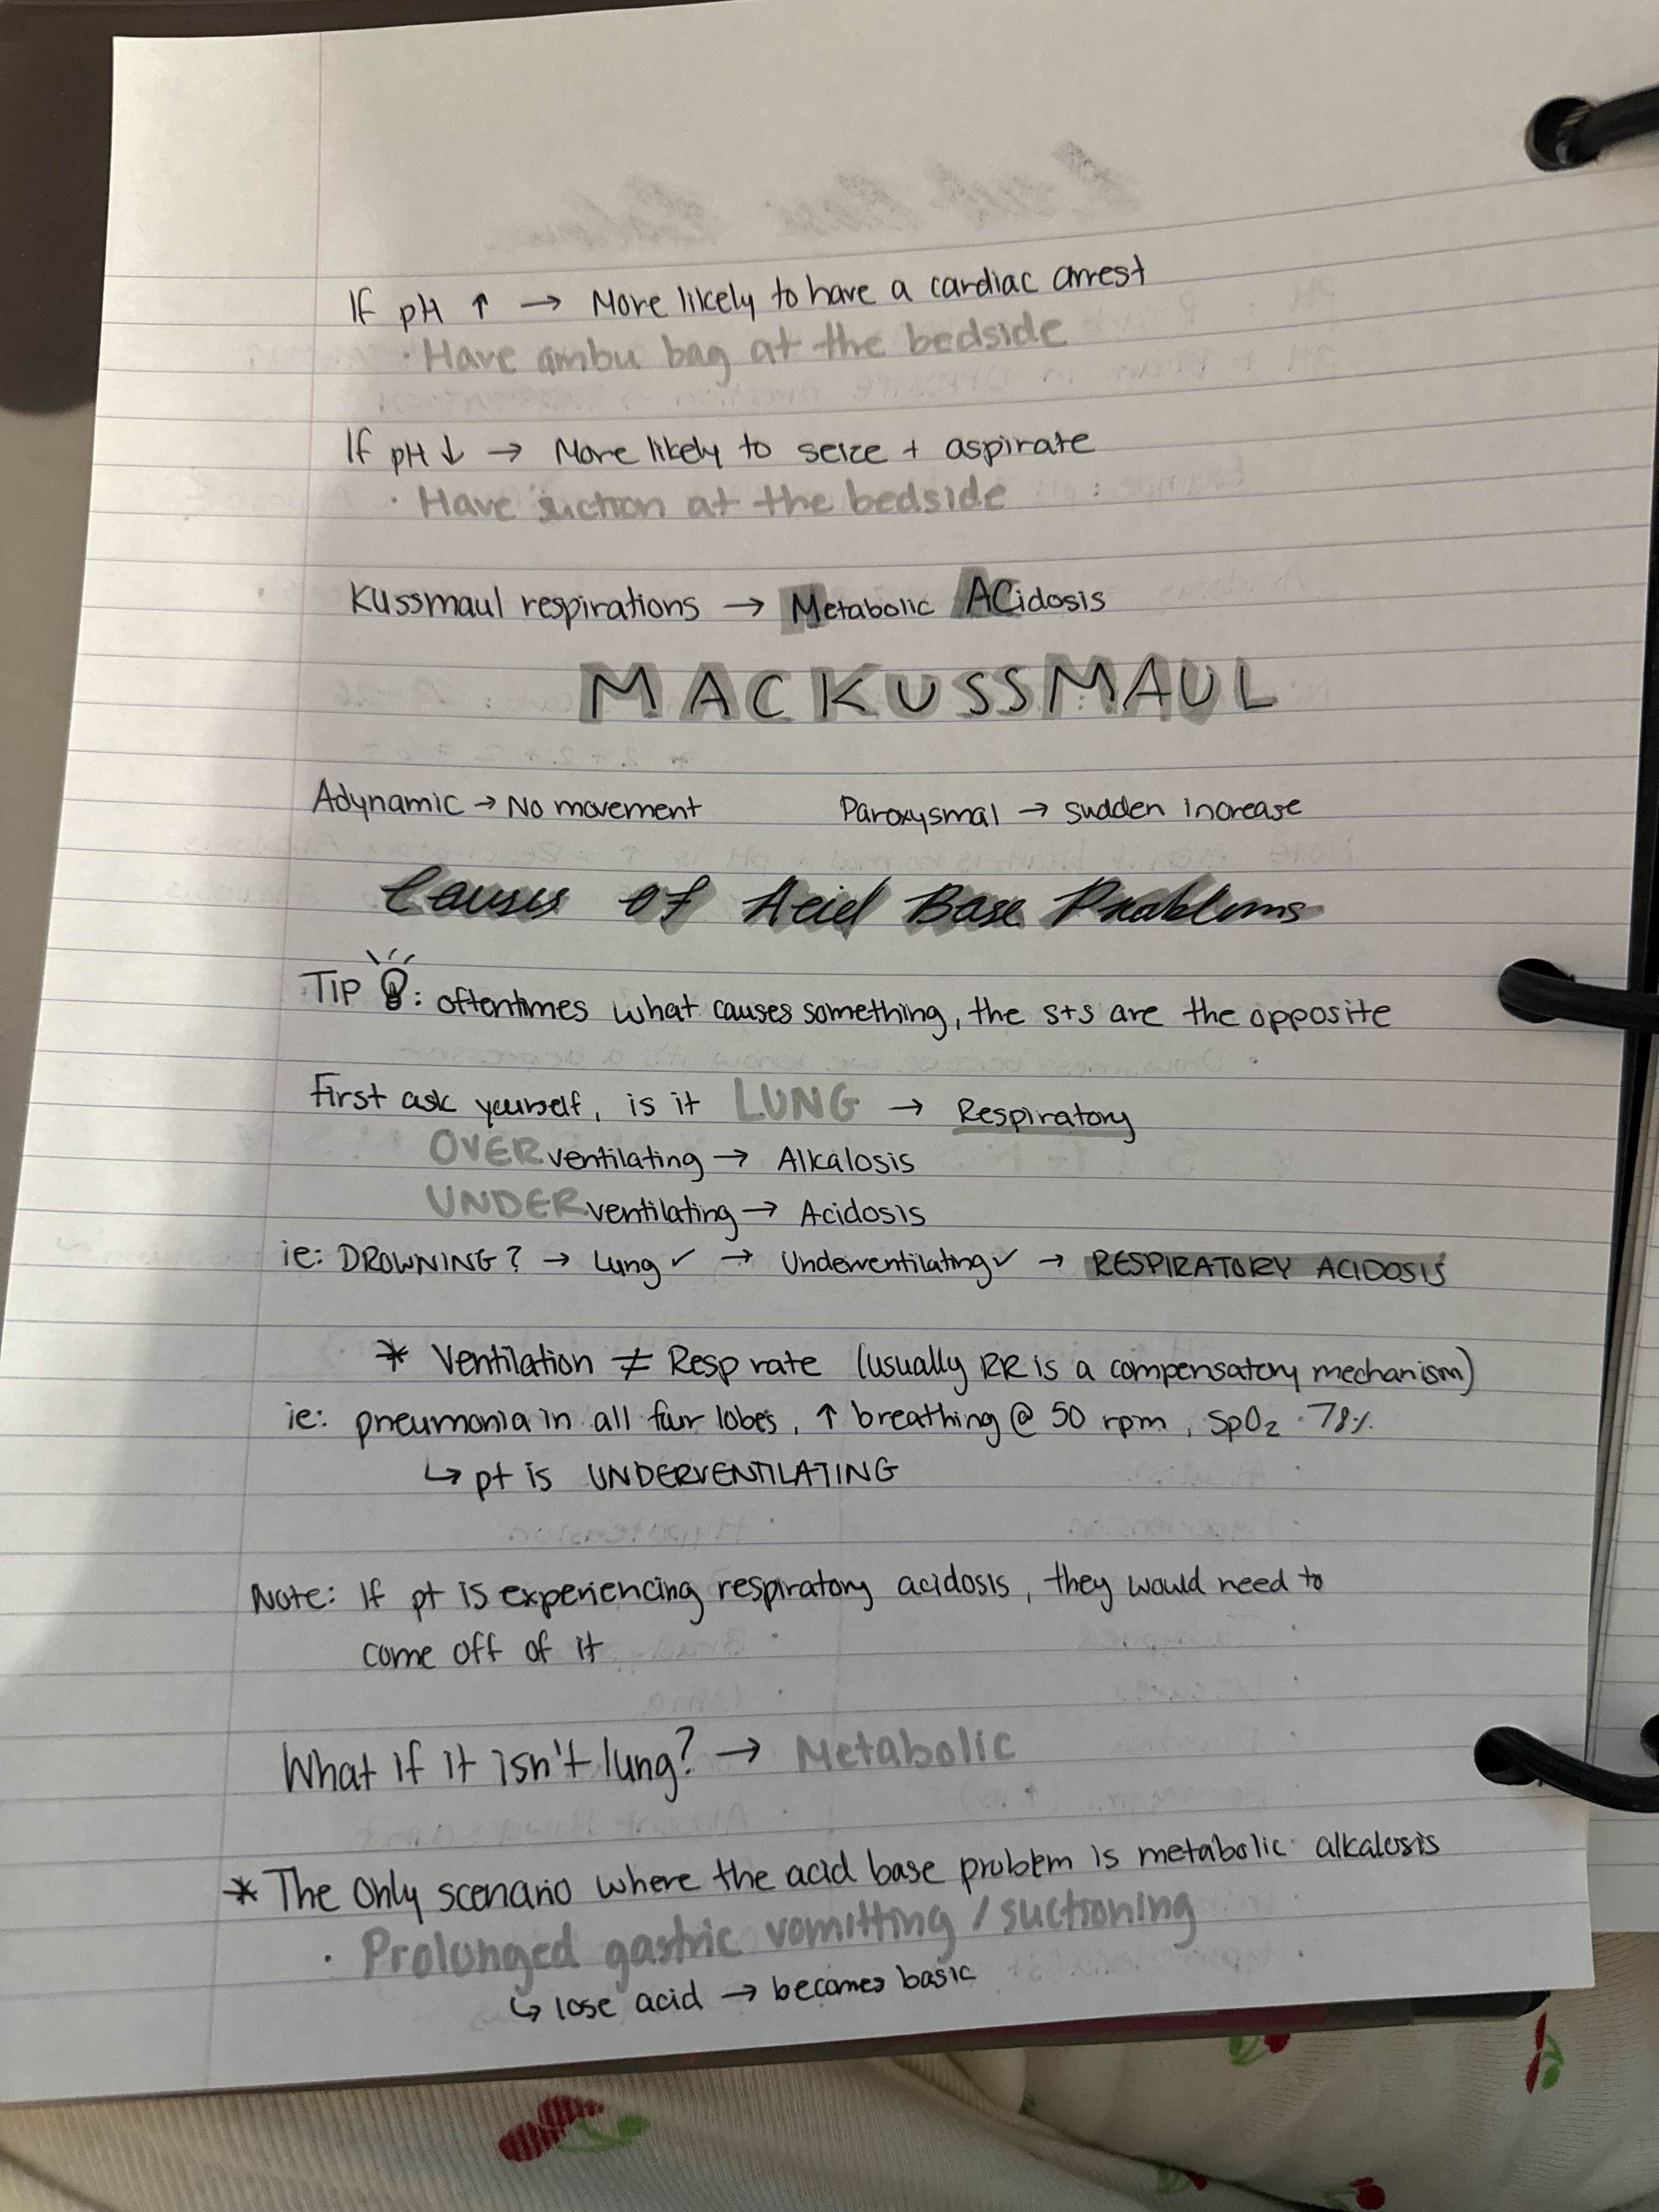 If pH ↑ → More likely to have a cardiac arrest
· Have ambu bag at the bedside
If pH ↓ → More likely to seize + aspirate
· Have suction at the bedside
Kussmaul respirations → Metabolic ACidosis
MACKUSSMAUL
Adynamic → No movement Paroxysmal → sudden increase
Causes of Acid Base Problems
Tip : oftentimes what causes something, the s+s are the opposite
First ask yourself, is it LUNG → Respiratory
OVERventilating → Alkalosis
UNDERventilating → Acidosis
ie: DROWNING? → Lung ✓ → Underventilating ✓ → RESPIRATORY ACIDOSIS
* Ventilation ≠ Resp rate (usually RR is a compensatory mechanism)
ie: pneumonia in all four lobes, ↑ breathing @ 50 rpm, SpO₂ 78%
↳ pt is UNDERVENTILATING
Note: If pt is experiencing respiratory acidosis, they would need to
come off of it
What if it isn't lung? → Metabolic
* The only scenario where the acid base problem is metabolic alkalosis
· Prolonged gastric vomitting / suctioning
↳ lose acid → becomes basic